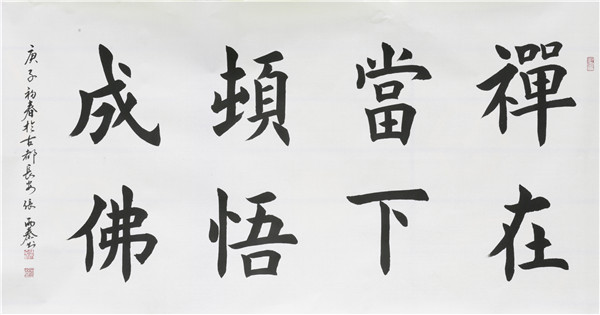 禪在
當下
頓悟
成佛
庚子初春於古都長安張西秦書